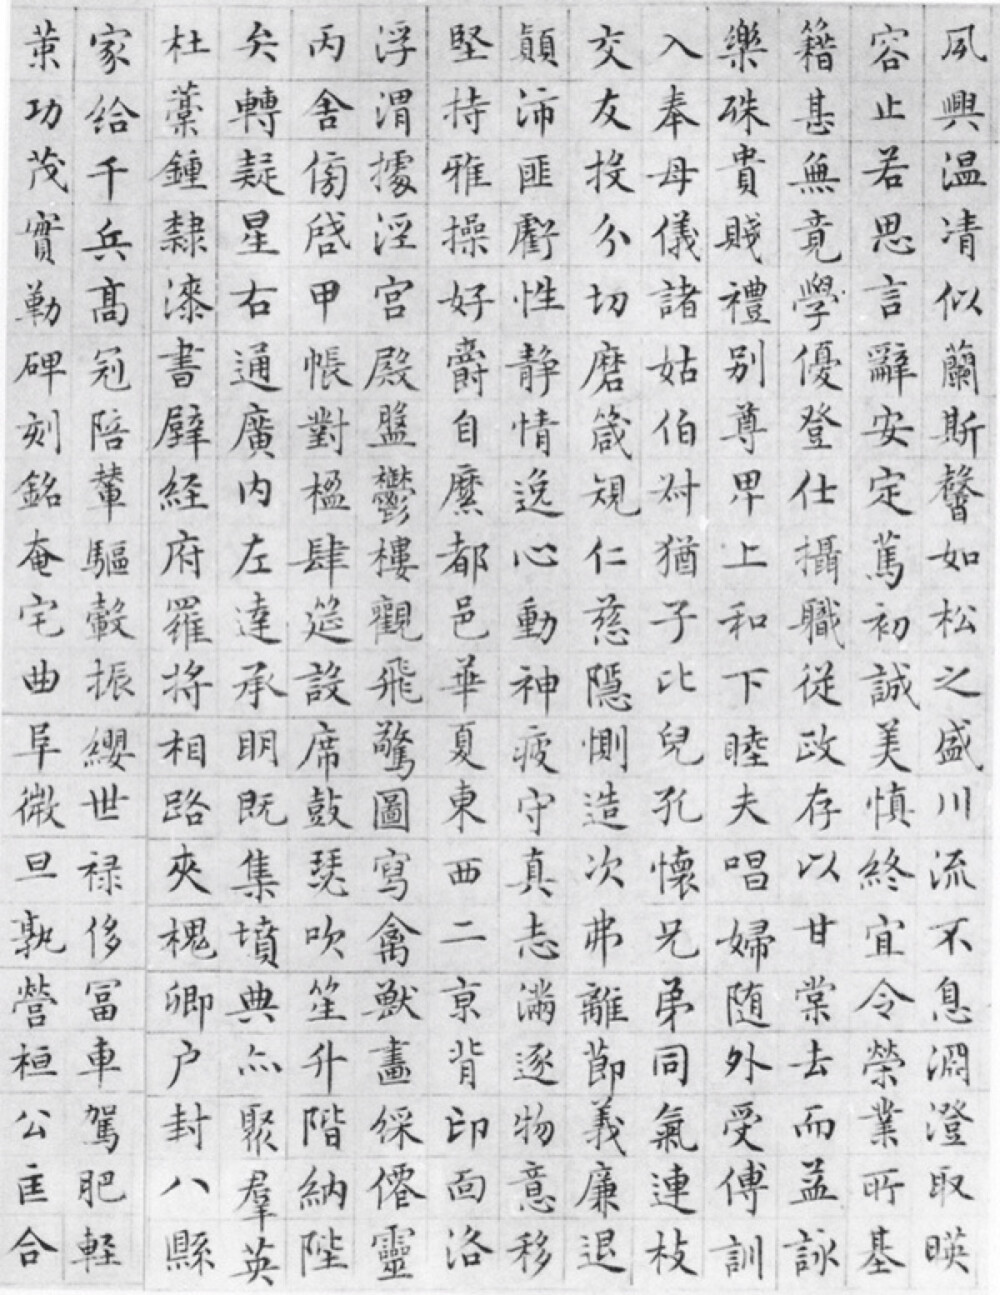 夙興温凊似蘭斯馨如松之盛川流不息淵澄取暎
容止若思言辭安定篤初誠美慎終宜令榮業所基
籍甚無竟學優登仕攝職從政存以甘棠去而益詠
樂殊貴賤禮别尊卑上和下睦夫唱婦随外受傅訓
入奉母儀諸姑伯叔猶子比兒孔懷兄弟同氣連枝
交友投分切磨箴規仁慈隱惻造次弗離節義廉退
顛沛匪虧性静情逸心動神疲守真志滿逐物意移
堅持雅操好爵自縻都邑華夏東西二京背邙面洛
浮渭據涇宫殿盤鬱樓觀飛驚圖寫禽獸畫綵僊靈
丙舍傍啓甲帳對楹肆筵設席鼓瑟吹笙升階納陛
弁轉疑星右通廣内左達承明既集墳典亦聚羣英
杜藁鍾隸漆書壁経府羅將相路夾槐卿户封八縣
家给千兵髙冠陪輦驅轂振纓世禄侈冨車駕肥軽
策功茂實勒碑刻銘奄宅曲阜微旦孰營桓公匡合